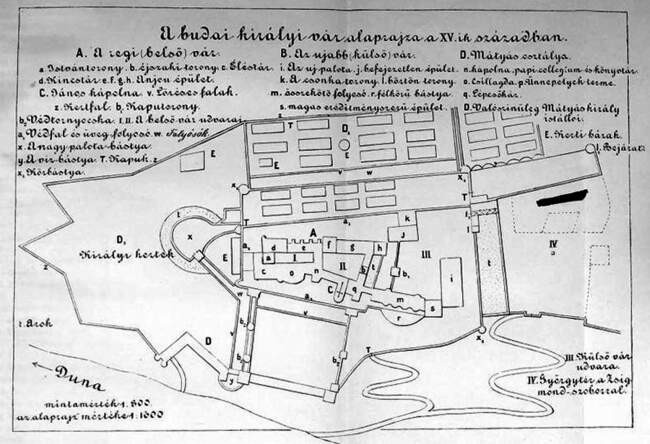 A budai királyi vár alaprajza a XV.ik században.
A. A régi (belső) vár.
a. Istvántorony. b. éjszaki torony. c. Éléstár.
d. Kincstár. e. f. g. h. Anjou épület.
C. János kápolna. v. Lőréses falak.
z. Kertfal. b₂ Kaputorony.
b₃ Védtornyocska. I. II. A belső vár udvarai
a₁ Védfal és üveg folyosó. w. Sulyósók.
x. A nagy palota-bástya.
y. A viz-bástya. T. Kapuk. z
x₁ Körbástya.
B. Az ujabb (külső) vár.
i. Az uj palota. j. befejezetlen épület.
k. A csonka torony. l. börtön torony.
m. összekötő folyosó. r. félkörű bástya.
s. magas eredítményszerű épület.
D. Mátyás osztálya.
n. kápolna, papi collegium és könyvtár.
o. Csillagda. p. Ünnepélyek terme.
q. Lépcsőház.
D. Valószinüleg Mátyás király
istállói.
E. Kerti házak.
l. Bejárat.
D₁ Királyi kertek
t. Árok
Duna
mintamérték 1:800.
az alaprajz mértéke 1:1600
III. Külső vár
udvara.
IV. Györgytér a Zsig-
mond-szoborral.